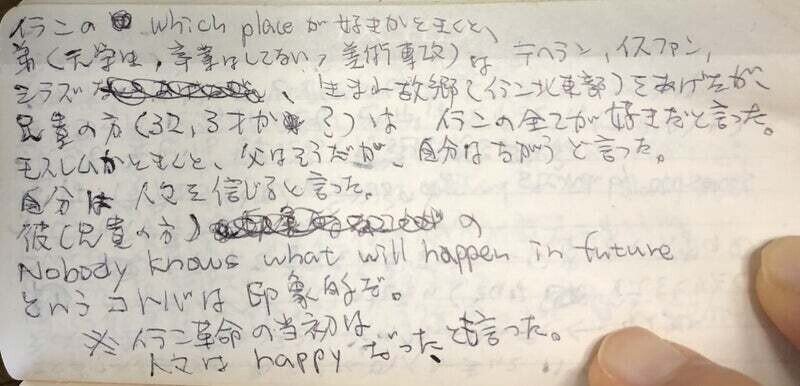 イランの which place が好きかときくと、
弟(大学生, 卒業はしてない, 美術専攻)は テヘラン, イスファン,
シラズ 、生まれ故郷(イラン北東部)をあげたが、
兄貴の方(32, 3才か?)は イランの全てが好きだと言った。
モスレムかときくと、父はそうだが、自分はちがうと言った。
自分は 人々を信じると言った。
彼(兄貴の方) の
Nobody knows what will happen in future
というコトバは 印象的だ。
※ イラン革命の当初は
人々は happy だった、とも言った。